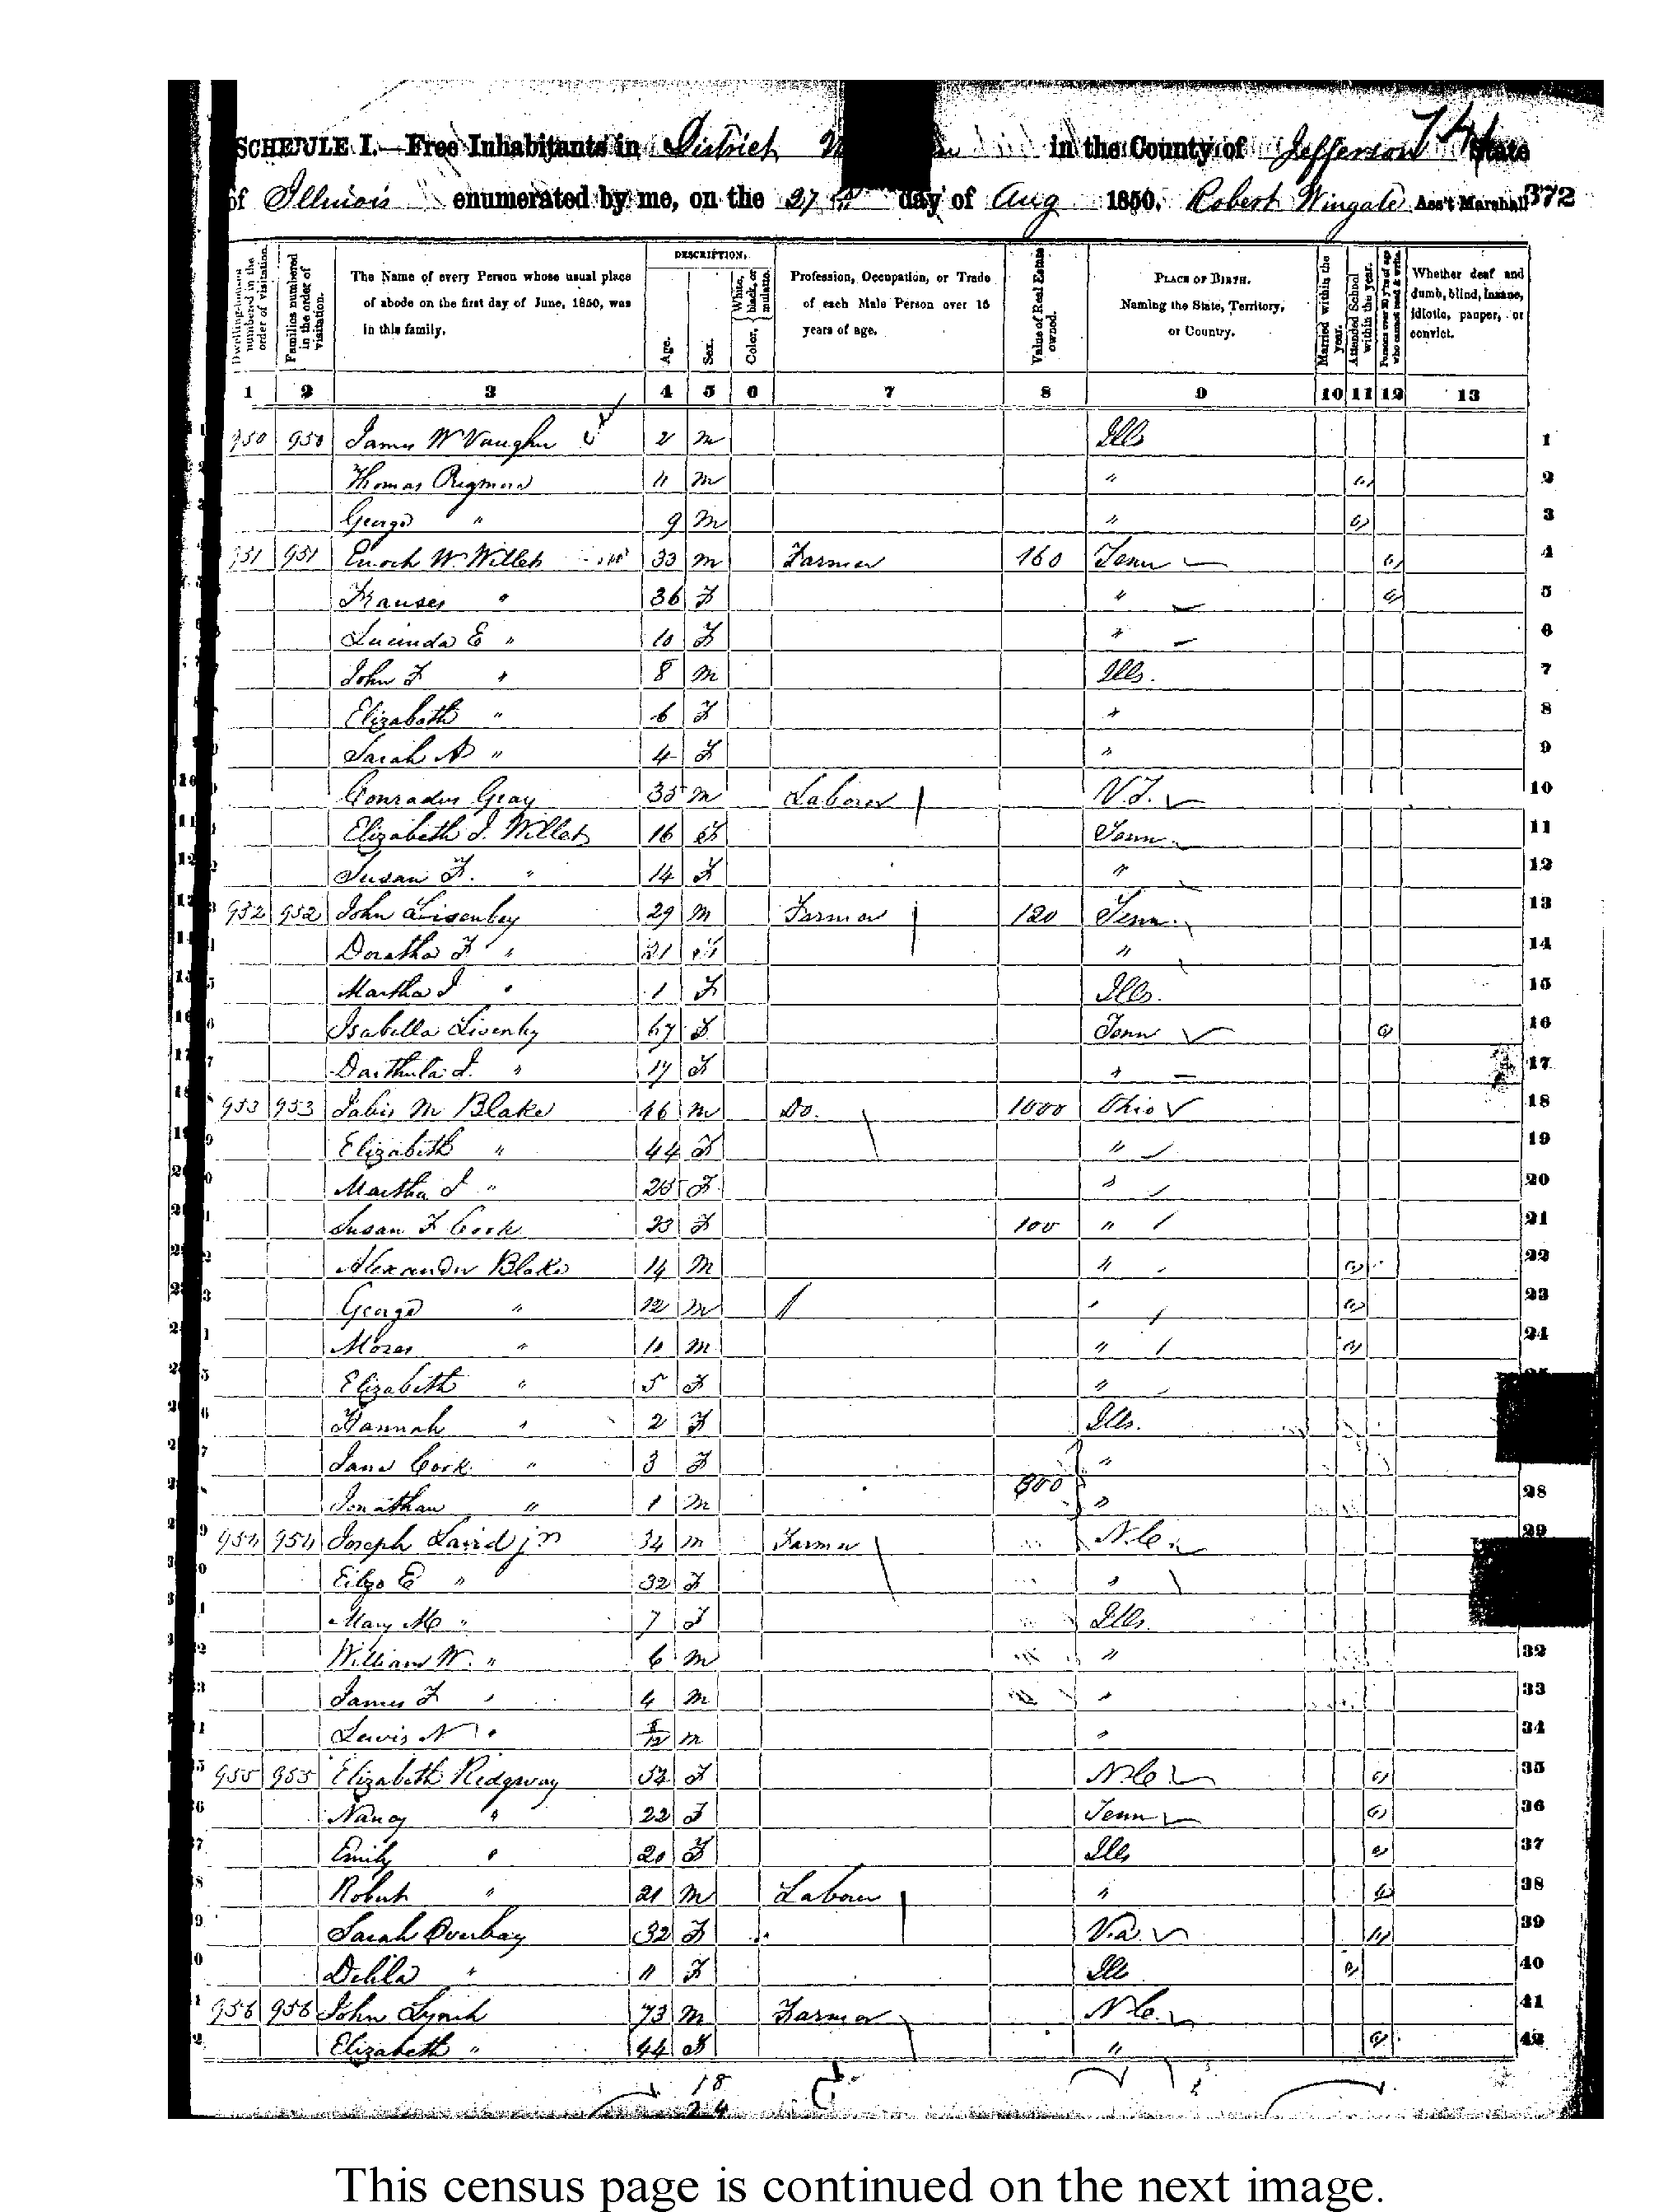 SCHEDULE I.—Free Inhabitants in District in the County of Jefferson State 741
of Illinois enumerated by me, on the 27th day of Aug 1850. Robert Wingate Ass't Marshall 372
Dwelling-houses numbered in the order of visitation. Families numbered in the order of visitation. The Name of every Person whose usual place of abode on the first day of June, 1850, was in this family. DESCRIPTION. Age. Sex. Color, White, black, or mulatto. Profession, Occupation, or Trade of each Male Person over 15 years of age. Value of Real Estate owned. PLACE OF BIRTH. Naming the State, Territory, or Country. Married within the year. Attended School within the year. Persons over 20 y'rs of age who cannot read & write. Whether deaf and dumb, blind, insane, idiotic, pauper, or convict.
1 2 3 4 5 6 7 8 9 10 11 12 13
1 950 950 James W Vaughn 2 m Ills 1
2 Thomas 11 m " 2
3 George " 9 m " 3
4 951 951 Enoch W. Willets 33 m Farmer 160 Tenn 4
5 Franses " 36 F " 5
6 Lucinda E " 10 F " 6
7 John F " 8 m Ills. 7
8 Elizabeth " 6 F " 8
9 Sarah A " 4 F " 9
10 Conradus Gray 35 m Laborer N.J. 10
11 Elizabeth J. Willets 16 F Tenn 11
12 Susan F. " 14 F " 12
13 952 952 John Lisenbey 29 m Farmer 120 Tenn. 13
14 Doratha F " 21 F " 14
15 Martha J " 1 F Ills. 15
16 Isabella Lisenby 67 F Tenn 16
17 Darthula J. " 17 F " 17
18 953 953 Jabis M Blake 46 m Do. 1000 Ohio 18
19 Elizabeth " 44 F " 19
20 Martha J " 25 F " 20
21 Susan F Cook 23 F 100 " 21
22 Alexander Blake 14 M " 22
23 George " 12 m " 23
24 Moses " 10 m " 24
Elizabeth " 5 F "
Hannah " 2 F Ills.
Jane Cook " 3 F "
Jonathan " 1 m 800 " 28
954 954 Joseph Laird jr 34 m Farmer N.C. 29
E " 32 F "
Mary M " 7 F Ills.
William W. " 6 m " 32
James F " 4 m " 33
Lewis N " /12 m " 34
955 955 Elizabeth Ridgway 52 F N.C 35
Nancy " 22 F Tenn 36
Emily " 20 F Ills 37
Robert " 21 m Laborer " 38
Sarah Overbay 32 F Va. 39
Delila " 11 F Ill 40
956 956 John Lynch 73 m Farmer N.C. 41
Elizabeth " 44 F " 42
18
24
This census page is continued on the next image.